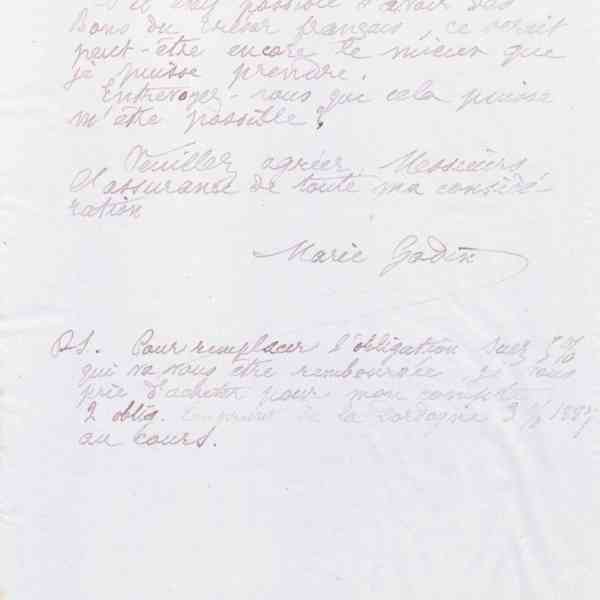 S'il était possible d'avoir des
Bons du trésor français, ce serait
peut-être encore le mieux que
je puisse prendre.
Entrevoyez-vous que cela puisse
m'être possible?
Veuillez agréer, Messieurs
l'assurance de toute ma considé-
ration
Marie Godin
PS. Pour remplacer l'obligation Suez 5%
qui va nous être remboursée je vous
prie d'acheter pour mon compte
2 oblig. Emprunt de la Dordogne 3 %
au cours.